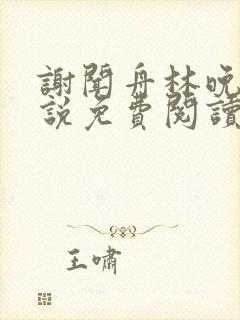 謝聞舟林晚
說免費閱讀
王嘯